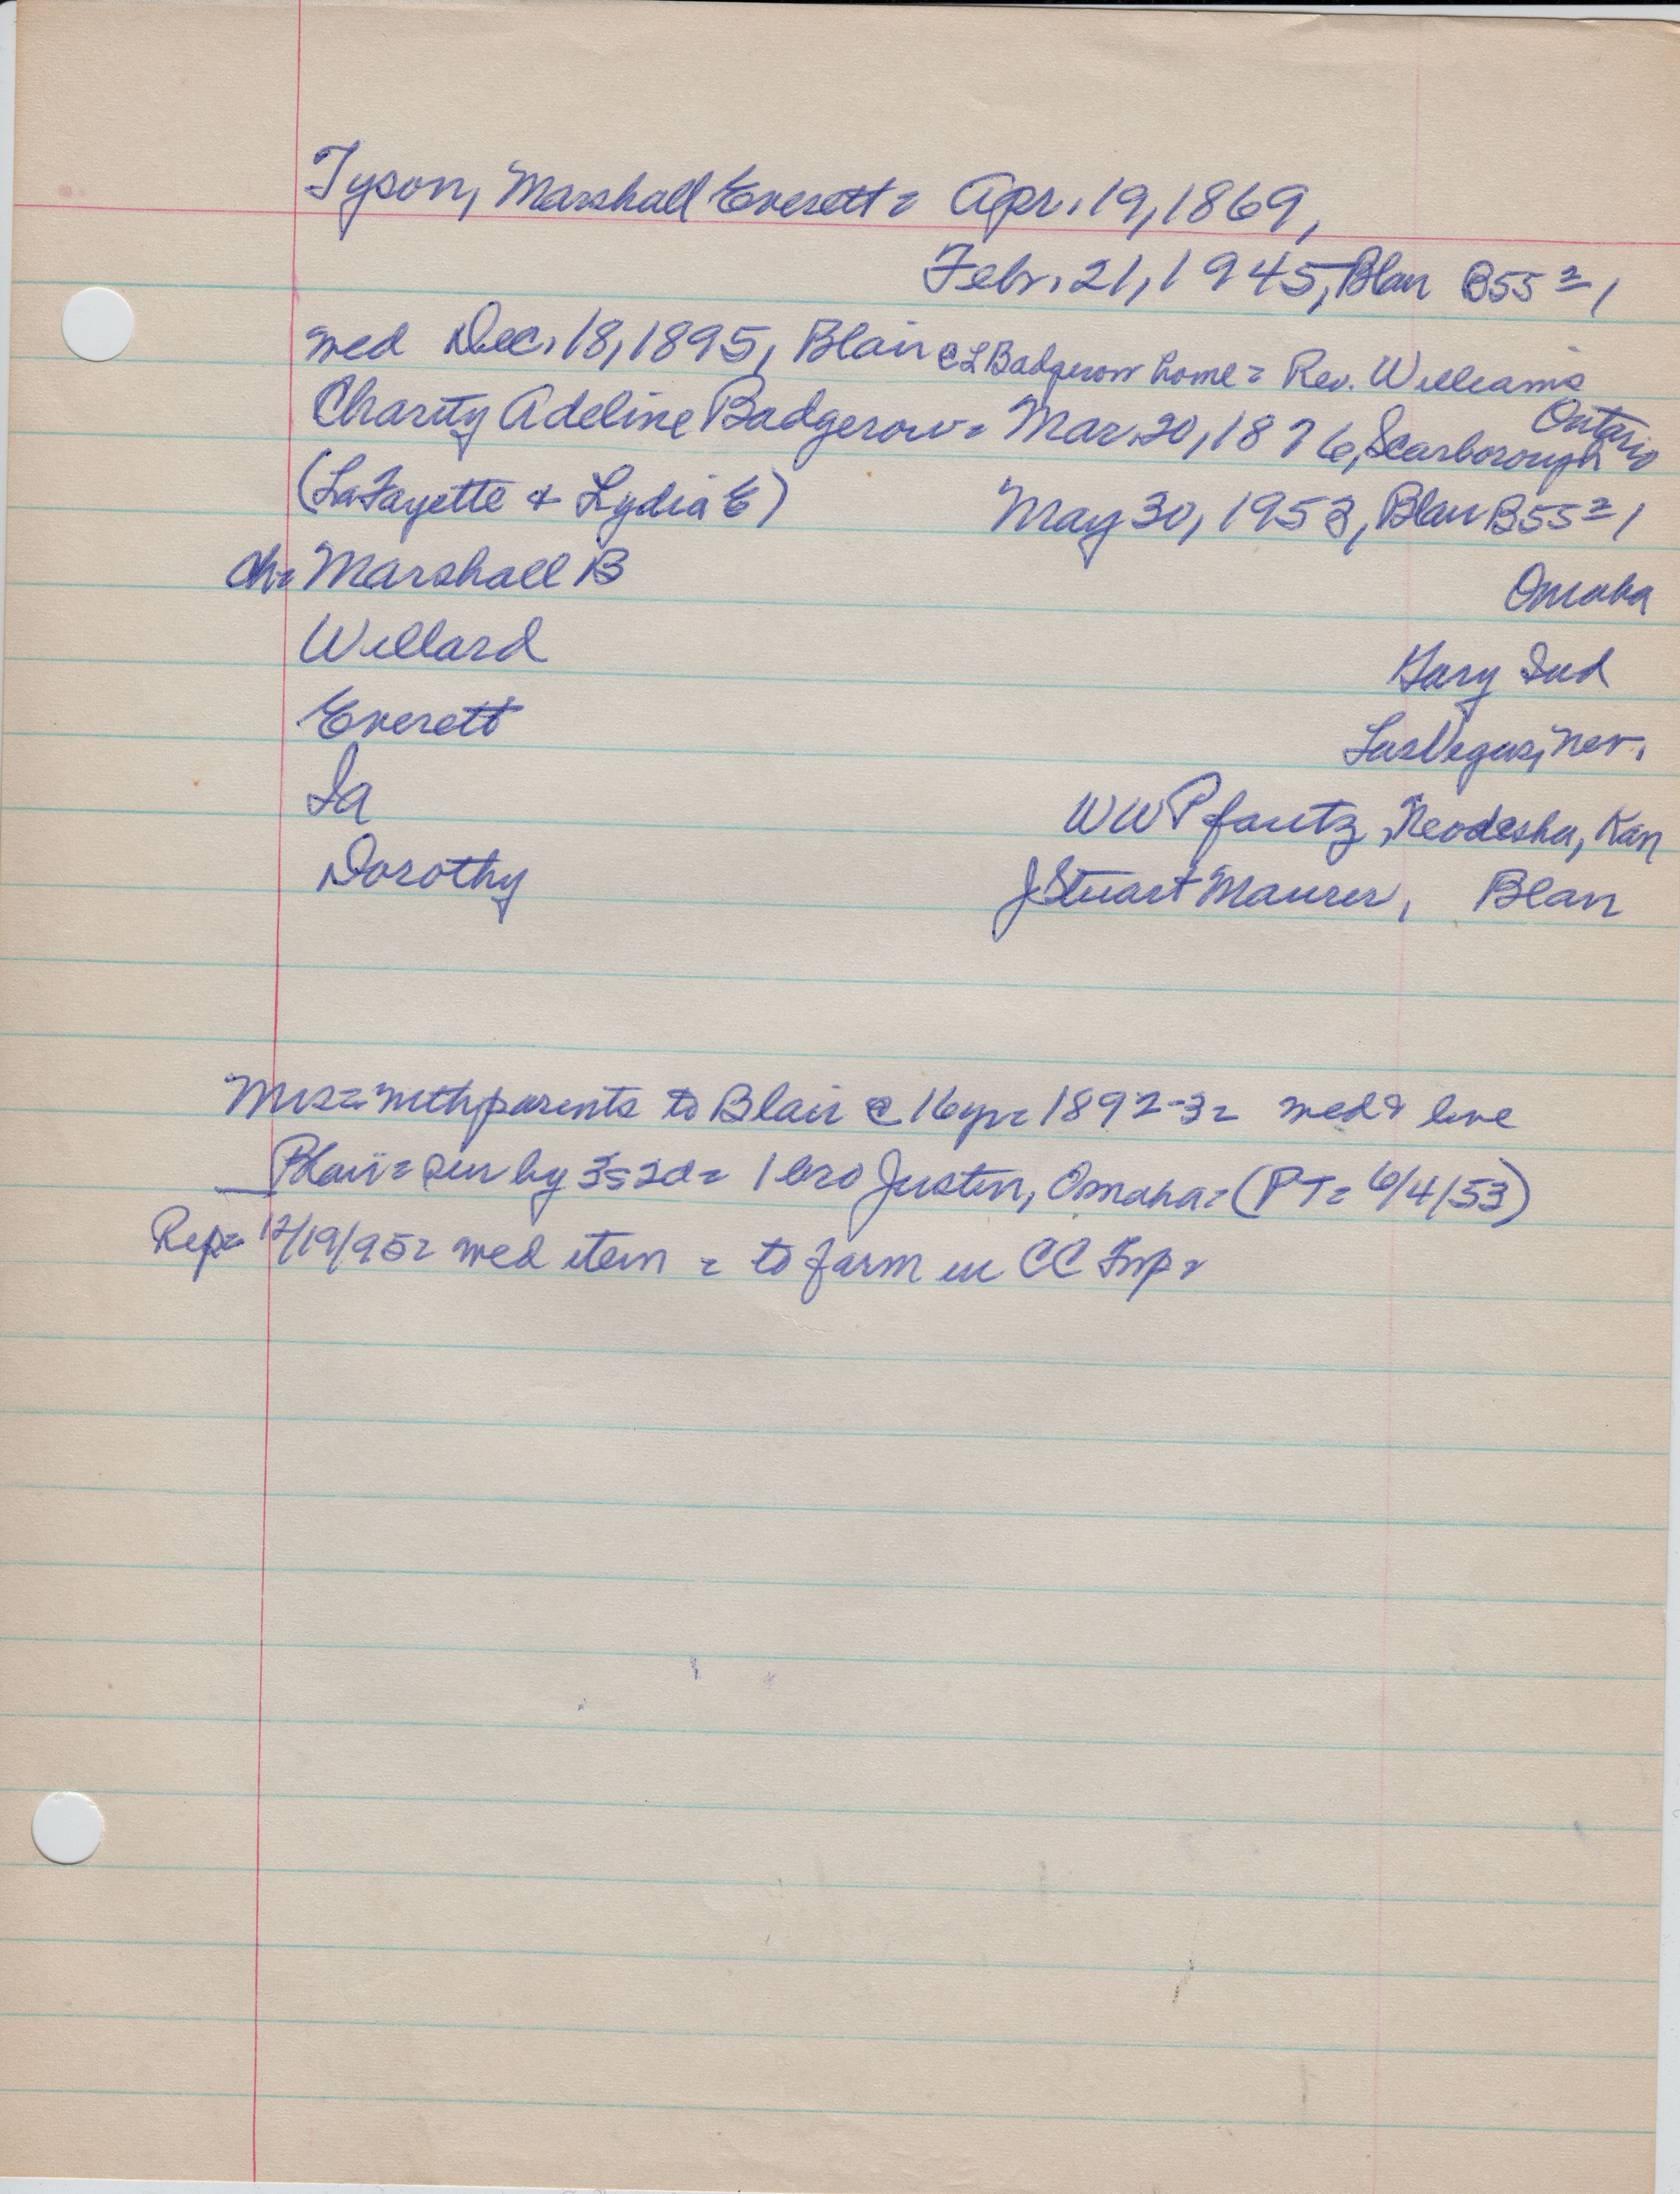 Tyson, Marshall Everett = Apr. 19, 1869,
Febr. 21, 1945, Blair B55 = 1
wed Dec. 18, 1895, Blair @ L Badgerow home = Rev. Williams
Charity Adeline Badgerow = Mar. 20, 1876, Scarborough Ontario
(LaFayette & Lydia E) May 30, 1953, Blair B55 = 1
ch = Marshall B Omaha
Willard Gary Ind
Everett Las Vegas, Nev.
Ia WW Pfautz, Neodesha, Kan
Dorothy J Stuart Maurer, Blair
Mrs = with parents to Blair @ 16 yr = 1892-3 = wed & live
Blair = sur by 3s 2d = 1 bro Justin, Omaha = (PT = 6/4/53)
Rep = 12/19/95 = wed item = to farm in CC Twp =